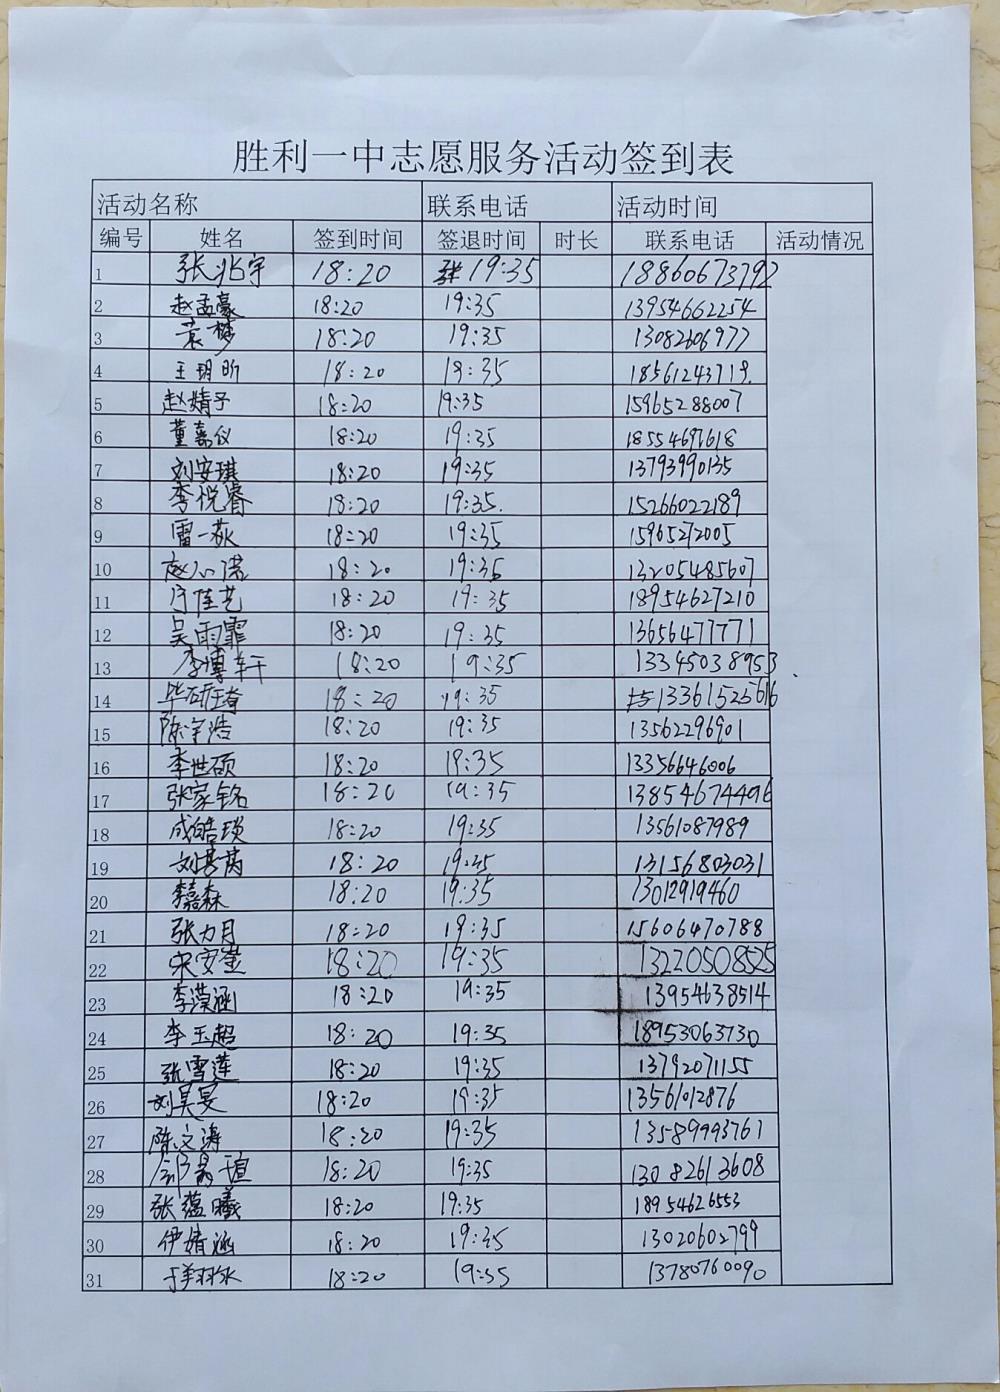 胜利一中志愿服务活动签到表
活动名称 联系电话 活动时间
编号 姓名 签到时间 签退时间 时长 联系电话 活动情况
1 张兆宇 18:20 19:35 18860673792
2 赵孟豪 18:20 19:35 13954662254
3 袁梦 18:20 19:35 13082606977
4 王玥昕 18:20 19:35 18561243719.
5 赵婧子 18:20 19:35 15965288007
6 董嘉仪 18:20 19:35 18554697618
7 刘安琪 18:20 19:35 13793990135
8 李悦睿 18:20 19:35. 15266022189
9 雷一荻 18:20 19:35 15965272005
10 赵心诺 18:20 19:35 13205485607
11 佳艺 18:20 19:35 18954627210
12 吴雨霏 18:20 19:35 13656477771
13 李博轩 18:20 19:35 13345038953
14 毕 18:20 19:35 13361525616
15 陈宇浩 18:20 19:35 13562296901
16 李世硕 18:20 19:35 13356646006
17 张家铭 18:20 19:35 13854674496
18 成皓琰 18:20 19:35 13561087989
19 刘 18:20 19:35 13156803031
20 李嘉森 18:20 19:35 13012919460
21 张力月 18:20 19:35 15606470788
22 宋安莹 18:20 19:35 13220508525
23 李漠涵 18:20 19:35 13954638514
24 李玉超 18:20 19:35 18953063730
25 张雪莲 18:20 19:35 13792071155
26 刘昊旻 18:20 19:35 13561012876
27 陈文涛 18:20 19:35 13589993761
28 18:20 19:35 13082613608
29 张蕴曦 18:20 19:35 18954626553
30 伊婧涵 18:20 19:35 13020602799
31 18:20 19:35 13780760090